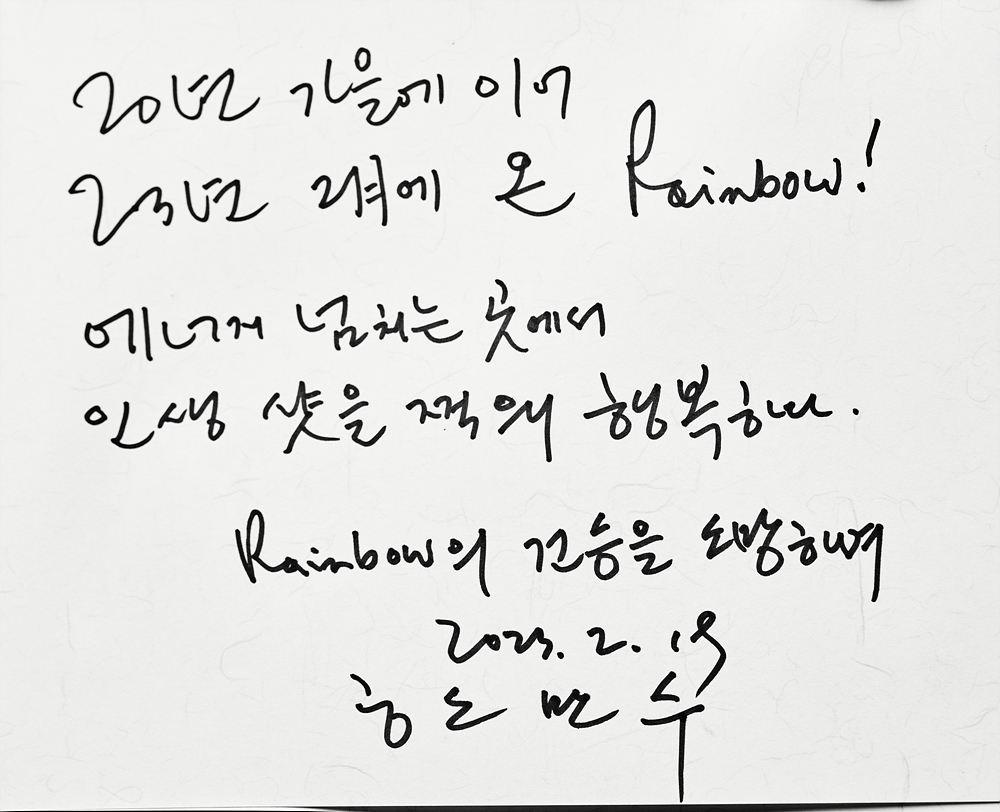 20년 가을에 이어
23년 2월에 온 Rainbow!
에너지 넘치는 곳에서
인생 샷을 찍으며 행복하다.
Rainbow의 건승을 소망하며
2023. 2. 19